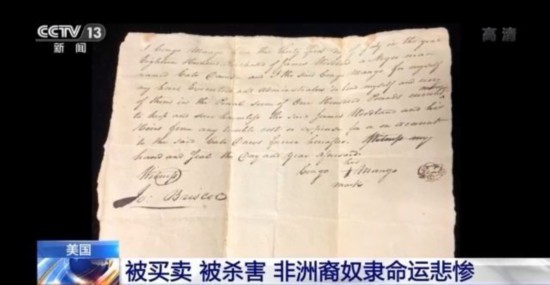 CCTV 13
新闻
高清
I Congo Mango this thirty first day of July in the year
Eighteen Hundred of James a Negro man
named Cato and I the said Congo Mango for myself
my heirs Executors and Administrators do myself and
of them in the Penal Sum of One Hundred Pounds
to keep and save harmless the said James and his
Heirs from any trouble cost or expense for or on account
to the said Cato hereafter. Witness my
hand and Seal the Day and year aforesaid
Witness
his
Congo + Mango
mark
Jo: Brisco
美国
被买卖 被杀害 非洲裔奴隶命运悲惨